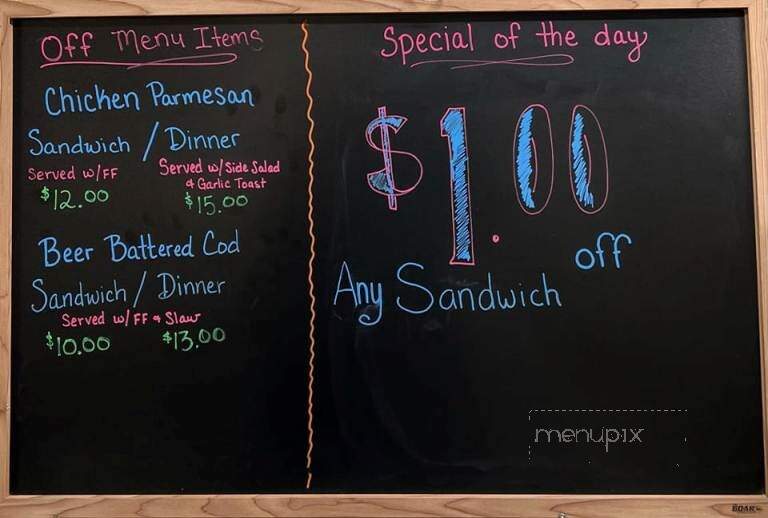 Off Menu Items
Chicken Parmesan
Sandwich / Dinner
Served w/FF
$12.00
Served w/ Side Salad
& Garlic Toast
$15.00
Beer Battered Cod
Sandwich / Dinner
Served w/ FF & Slaw
$10.00 $13.00
Special of the day
$1.00
off
Any Sandwich
menupix